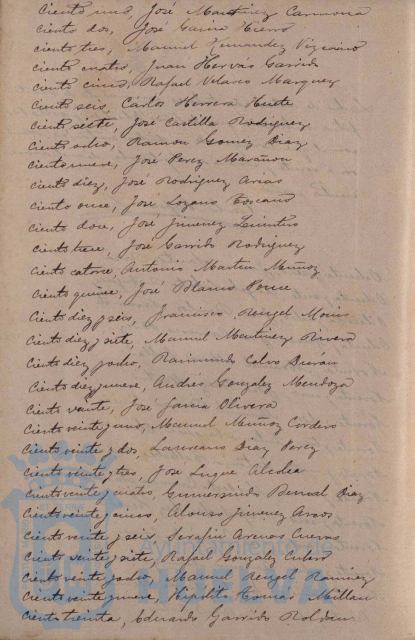 Ciento uno, José Martinez Carmona
Ciento dos, José Garcia Hierro
Ciento tres, Manuel Fernandez Vizcaino
Ciento cuatro, Juan Hervás Garrido
Ciento cinco, Rafael Velasco Marquez
Ciento seis, Carlos Herrera Huete
Ciento siete, José Castilla Rodriguez
Ciento ocho, Ramon Gomez Diaz
Ciento nueve, José Perez Marañon
Ciento diez, José Rodriguez Arias
Ciento once, José Lozano Toscano
Ciento doce, José Jimenez
Ciento trece, José Garrido Rodriguez
Ciento catorce, Antonio Martin Muñoz
Ciento quince, José Blanco Ponce
Ciento diez y seis, Francisco Rengel
Ciento diez y siete, Manuel Martinez Rivera
Ciento diez y ocho, Raimundo Calvo Durán
Ciento diez y nueve, Andres Gonzalez Mendoza
Ciento veinte, José Garcia Olivera
Ciento veinte y uno, Manuel Muñoz Cordero
Ciento veinte y dos, Laureano Diaz Perez
Ciento veinte y tres, José Luque Aledea
Ciento veinte y cuatro, Gumersindo Bernal Diaz
Ciento veinte y cinco, Alonso Jimenez Arcos
Ciento veinte y seis, Serafin Arenas Cueros
Ciento veinte y siete, Rafael Gonzalez Cubero
Ciento veinte y ocho, Manuel Rengel Ramirez
Ciento veinte y nueve, Hipolito Tomás Millan
Ciento treinta, Eduardo Garrido Roldan